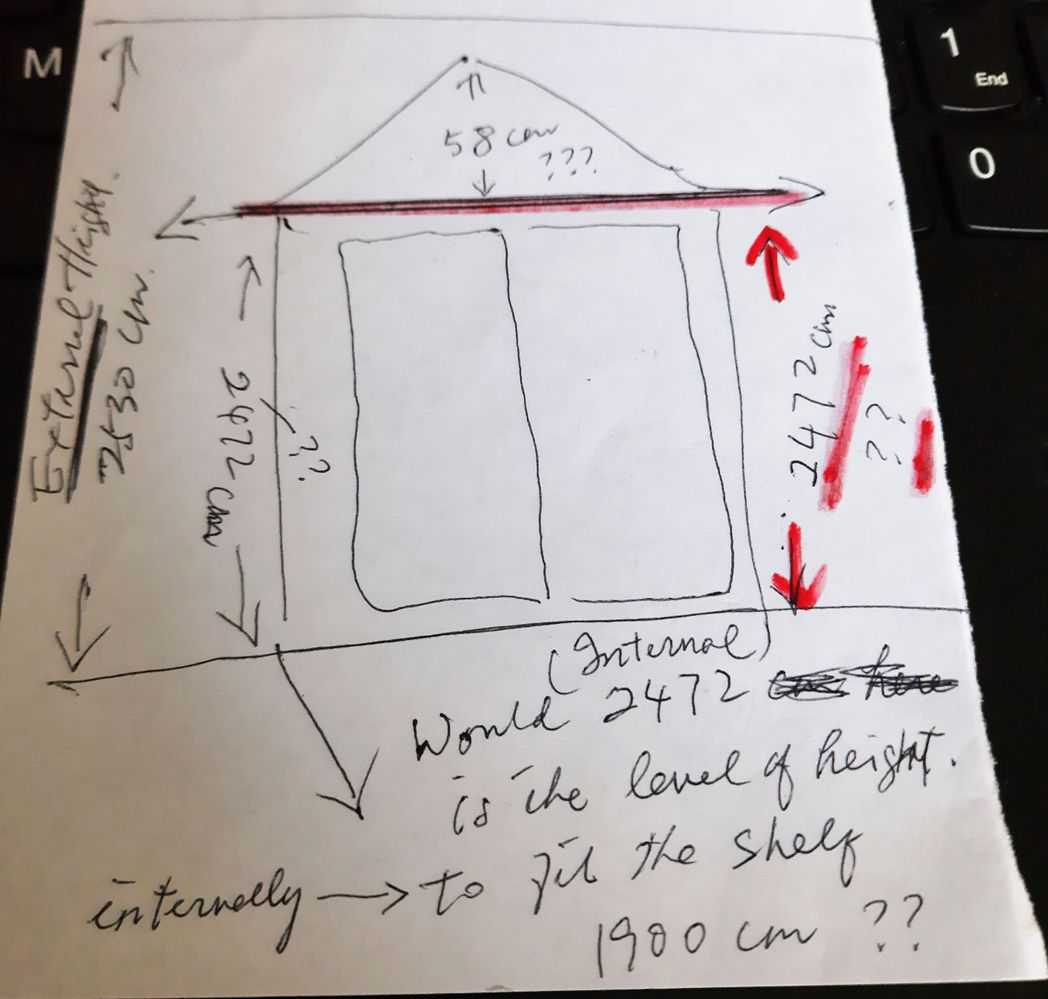 M
1
End
0
58 cm
???
External Height.
2530 cm.
2472 cm
??
2472 cm
??
(Internal)
Would 2472
is the level of height.
internally → to fit the shelf
1900 cm ??